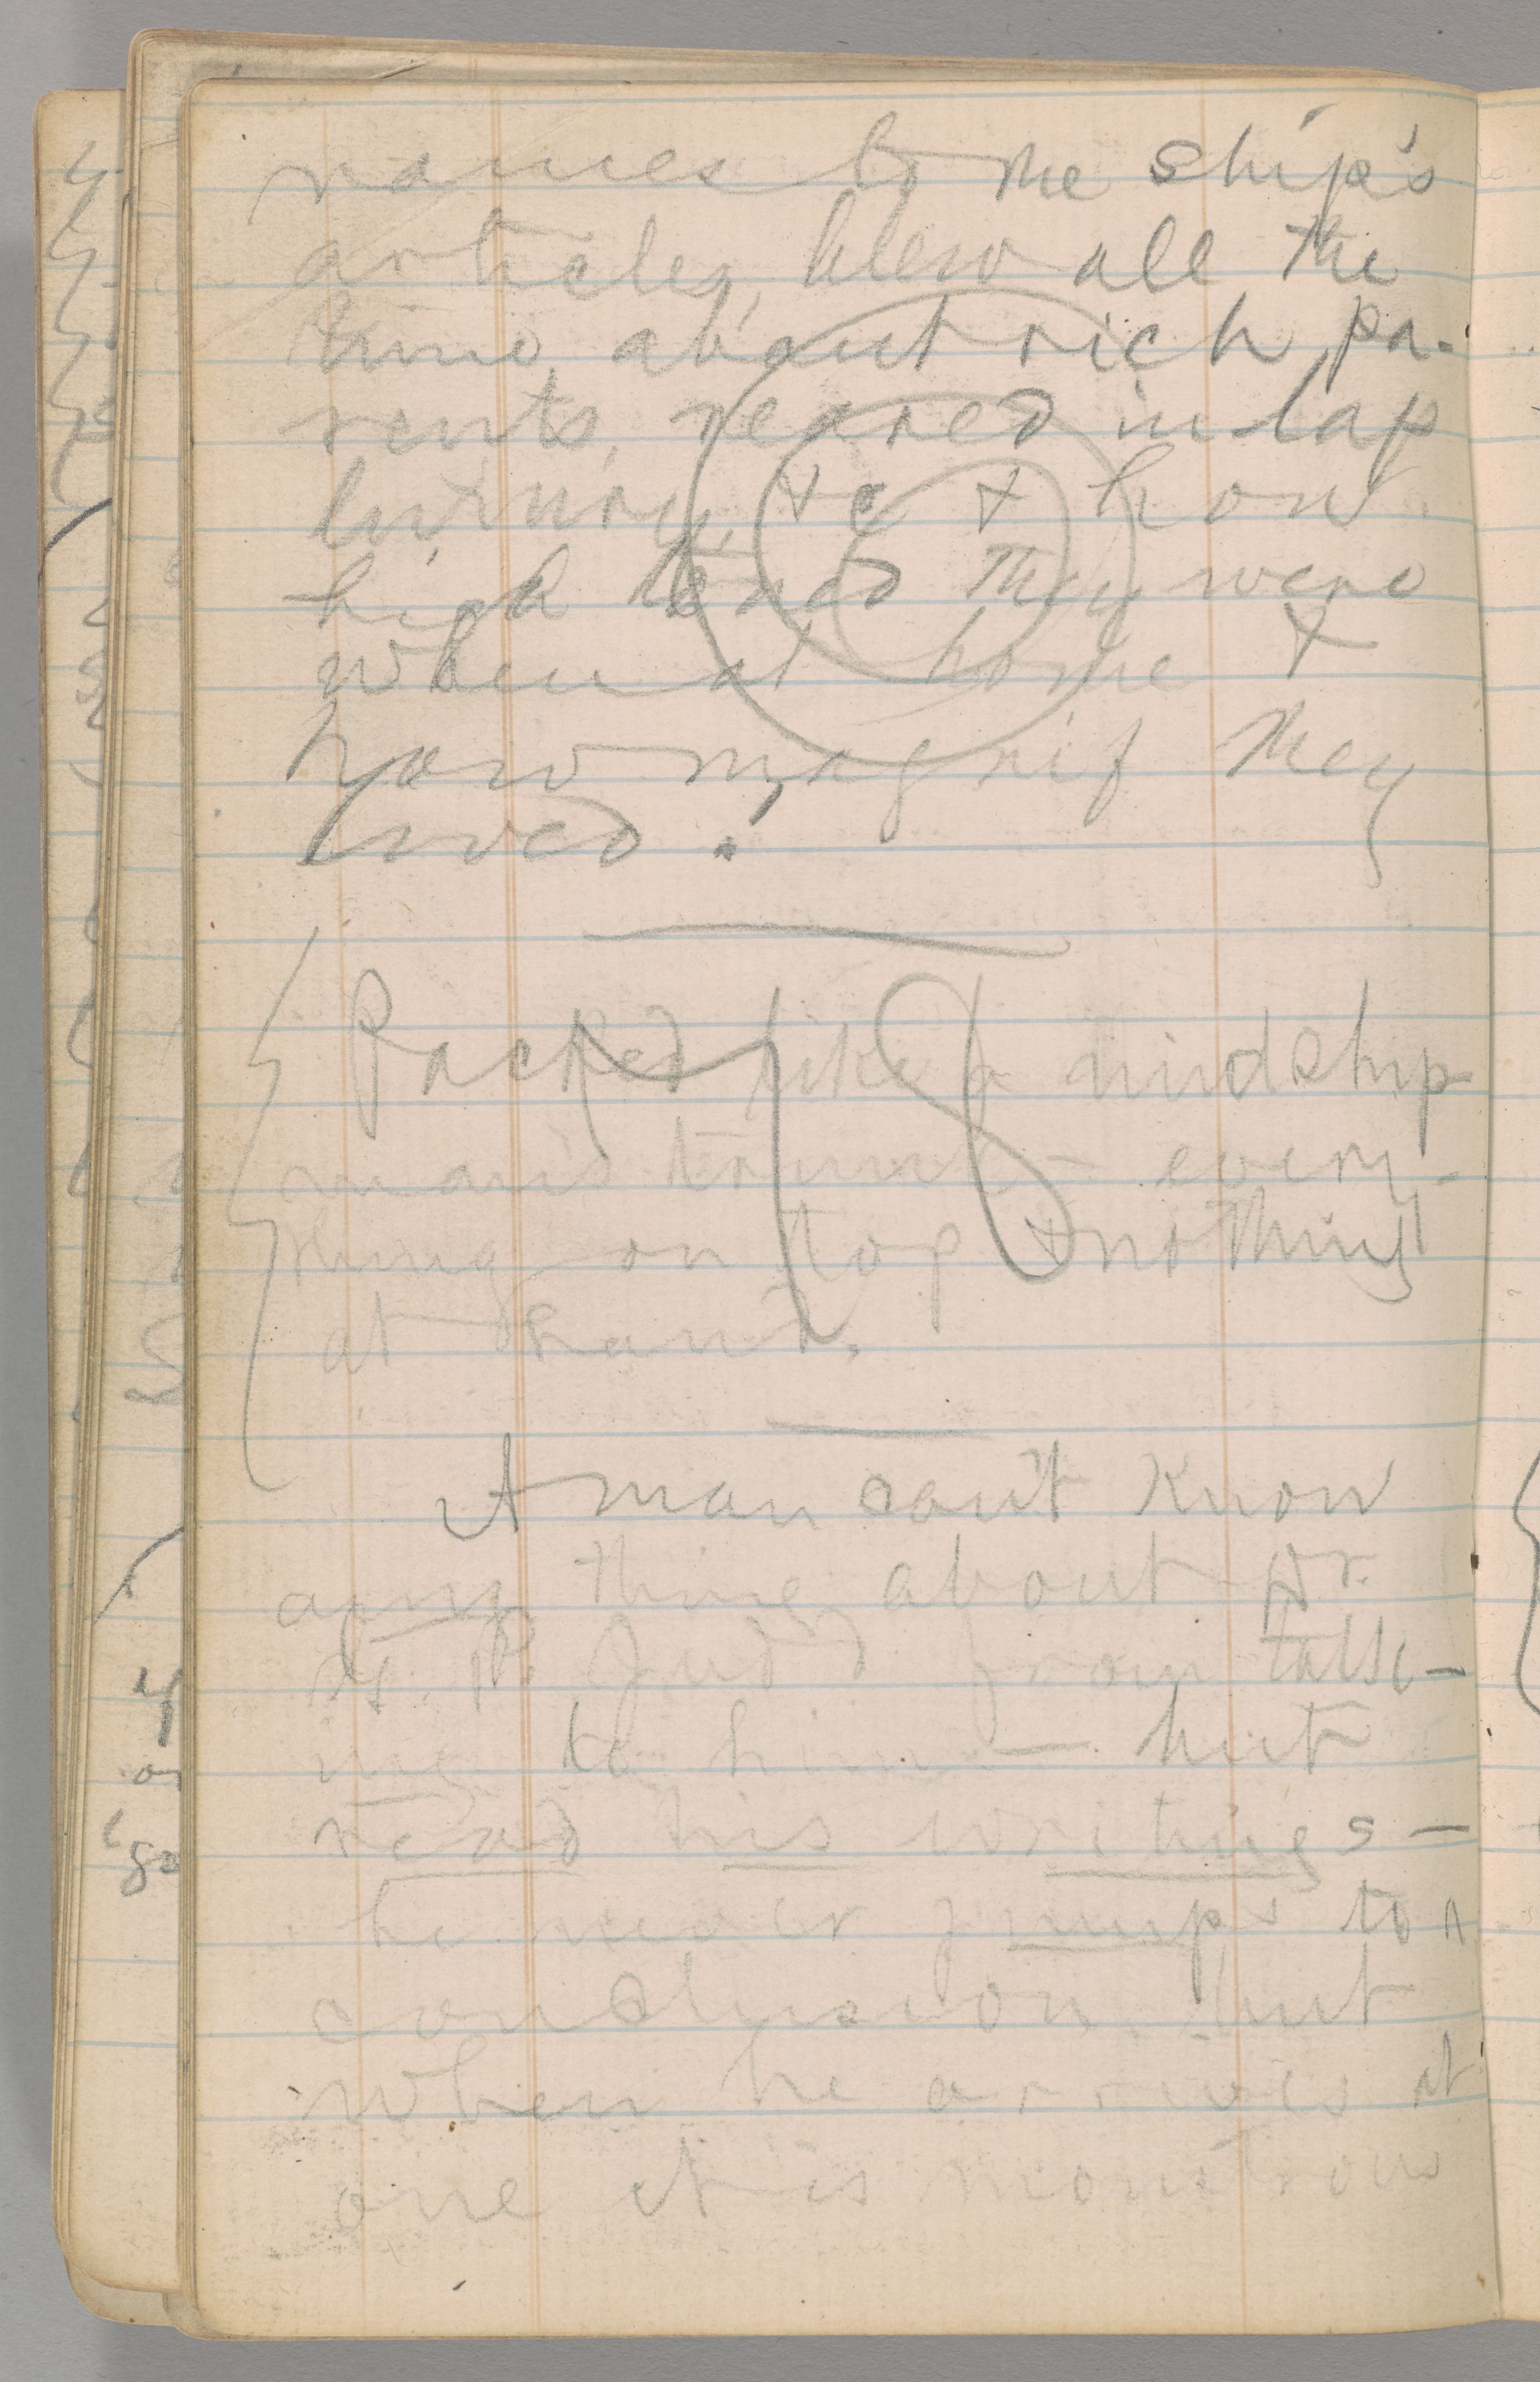 names to the ship's
articles, blew all the
time about rich pa-
rents, reared in lap
luxury, &c & how
high toned they were
when at home &
how magnif they
lived.
Packed like a midship-
man's trunk—every-
thing on top & nothing
at hand.
A man can't know
any thing about Dr.
G. P. Judd from talk-
ing to him—but
read his writings—
he never jumps to a
conclusion, but
when he arrives at
one it is monstrous